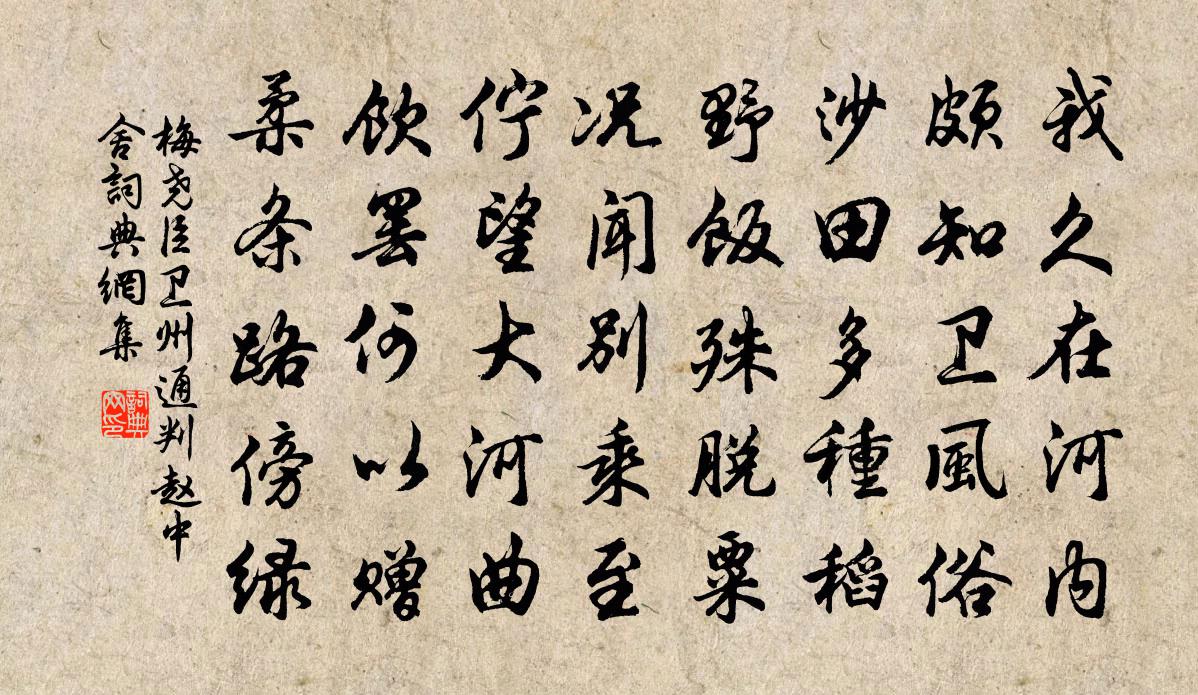 我久在河内
颇知卫風俗
沙田多種稻
野飯殊脱粟
况聞别乘至
佇望大河曲
飲罢何以赠
柔条路傍緑
梅尧臣卫州通判赵中
舍詞典網集
詞典
网印